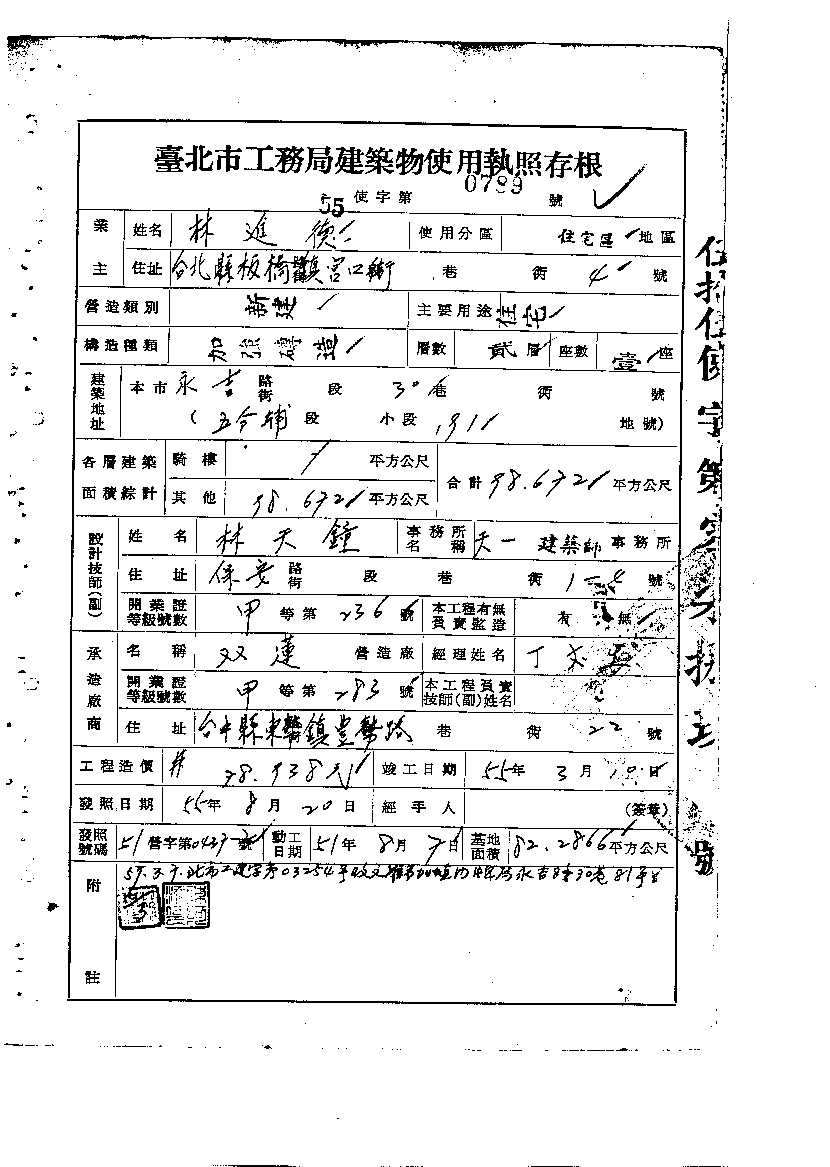 臺北市工務局建築物使用執照存根
55 使字第 0789 號
業主 姓名 林進德 使用分區 住宅區 地區
住址 台北縣板橋鎮 宮口街 巷 街 4 號
營造類別 新建 主要用途 住宅
構造種類 加強磚造 層數 貳層 座數 壹座
建築地址 本市永吉路街 段 30巷 衖 號
(五分埔段 小段 191 地號)
各層建築面積綜計 騎樓 平方公尺 合計98.672平方公尺
其他 98.672平方公尺
設計技師(副) 姓名 林天鐘 事務所名稱 天一建築師事務所
住址 保安路街 段 巷 衖 號
開業證等級號數 甲等第236號 本工程有無負責監造 有 無
承造廠商 名稱 双蓮 營造廠 經理姓名 丁
開業證等級號數 甲等第283號 本工程負責技師(副)姓名
住址 台中縣東勢鎮豐勢路 巷 衖 22 號
工程造價 78.938元 竣工日期 55年3月10日
發照日期 55年8月20日 經手人 (簽章)
發照號碼 51營字第0427號 動工日期 51年8月7日 基地面積 82.2866平方公尺
附註
伍拾伍使字第 號